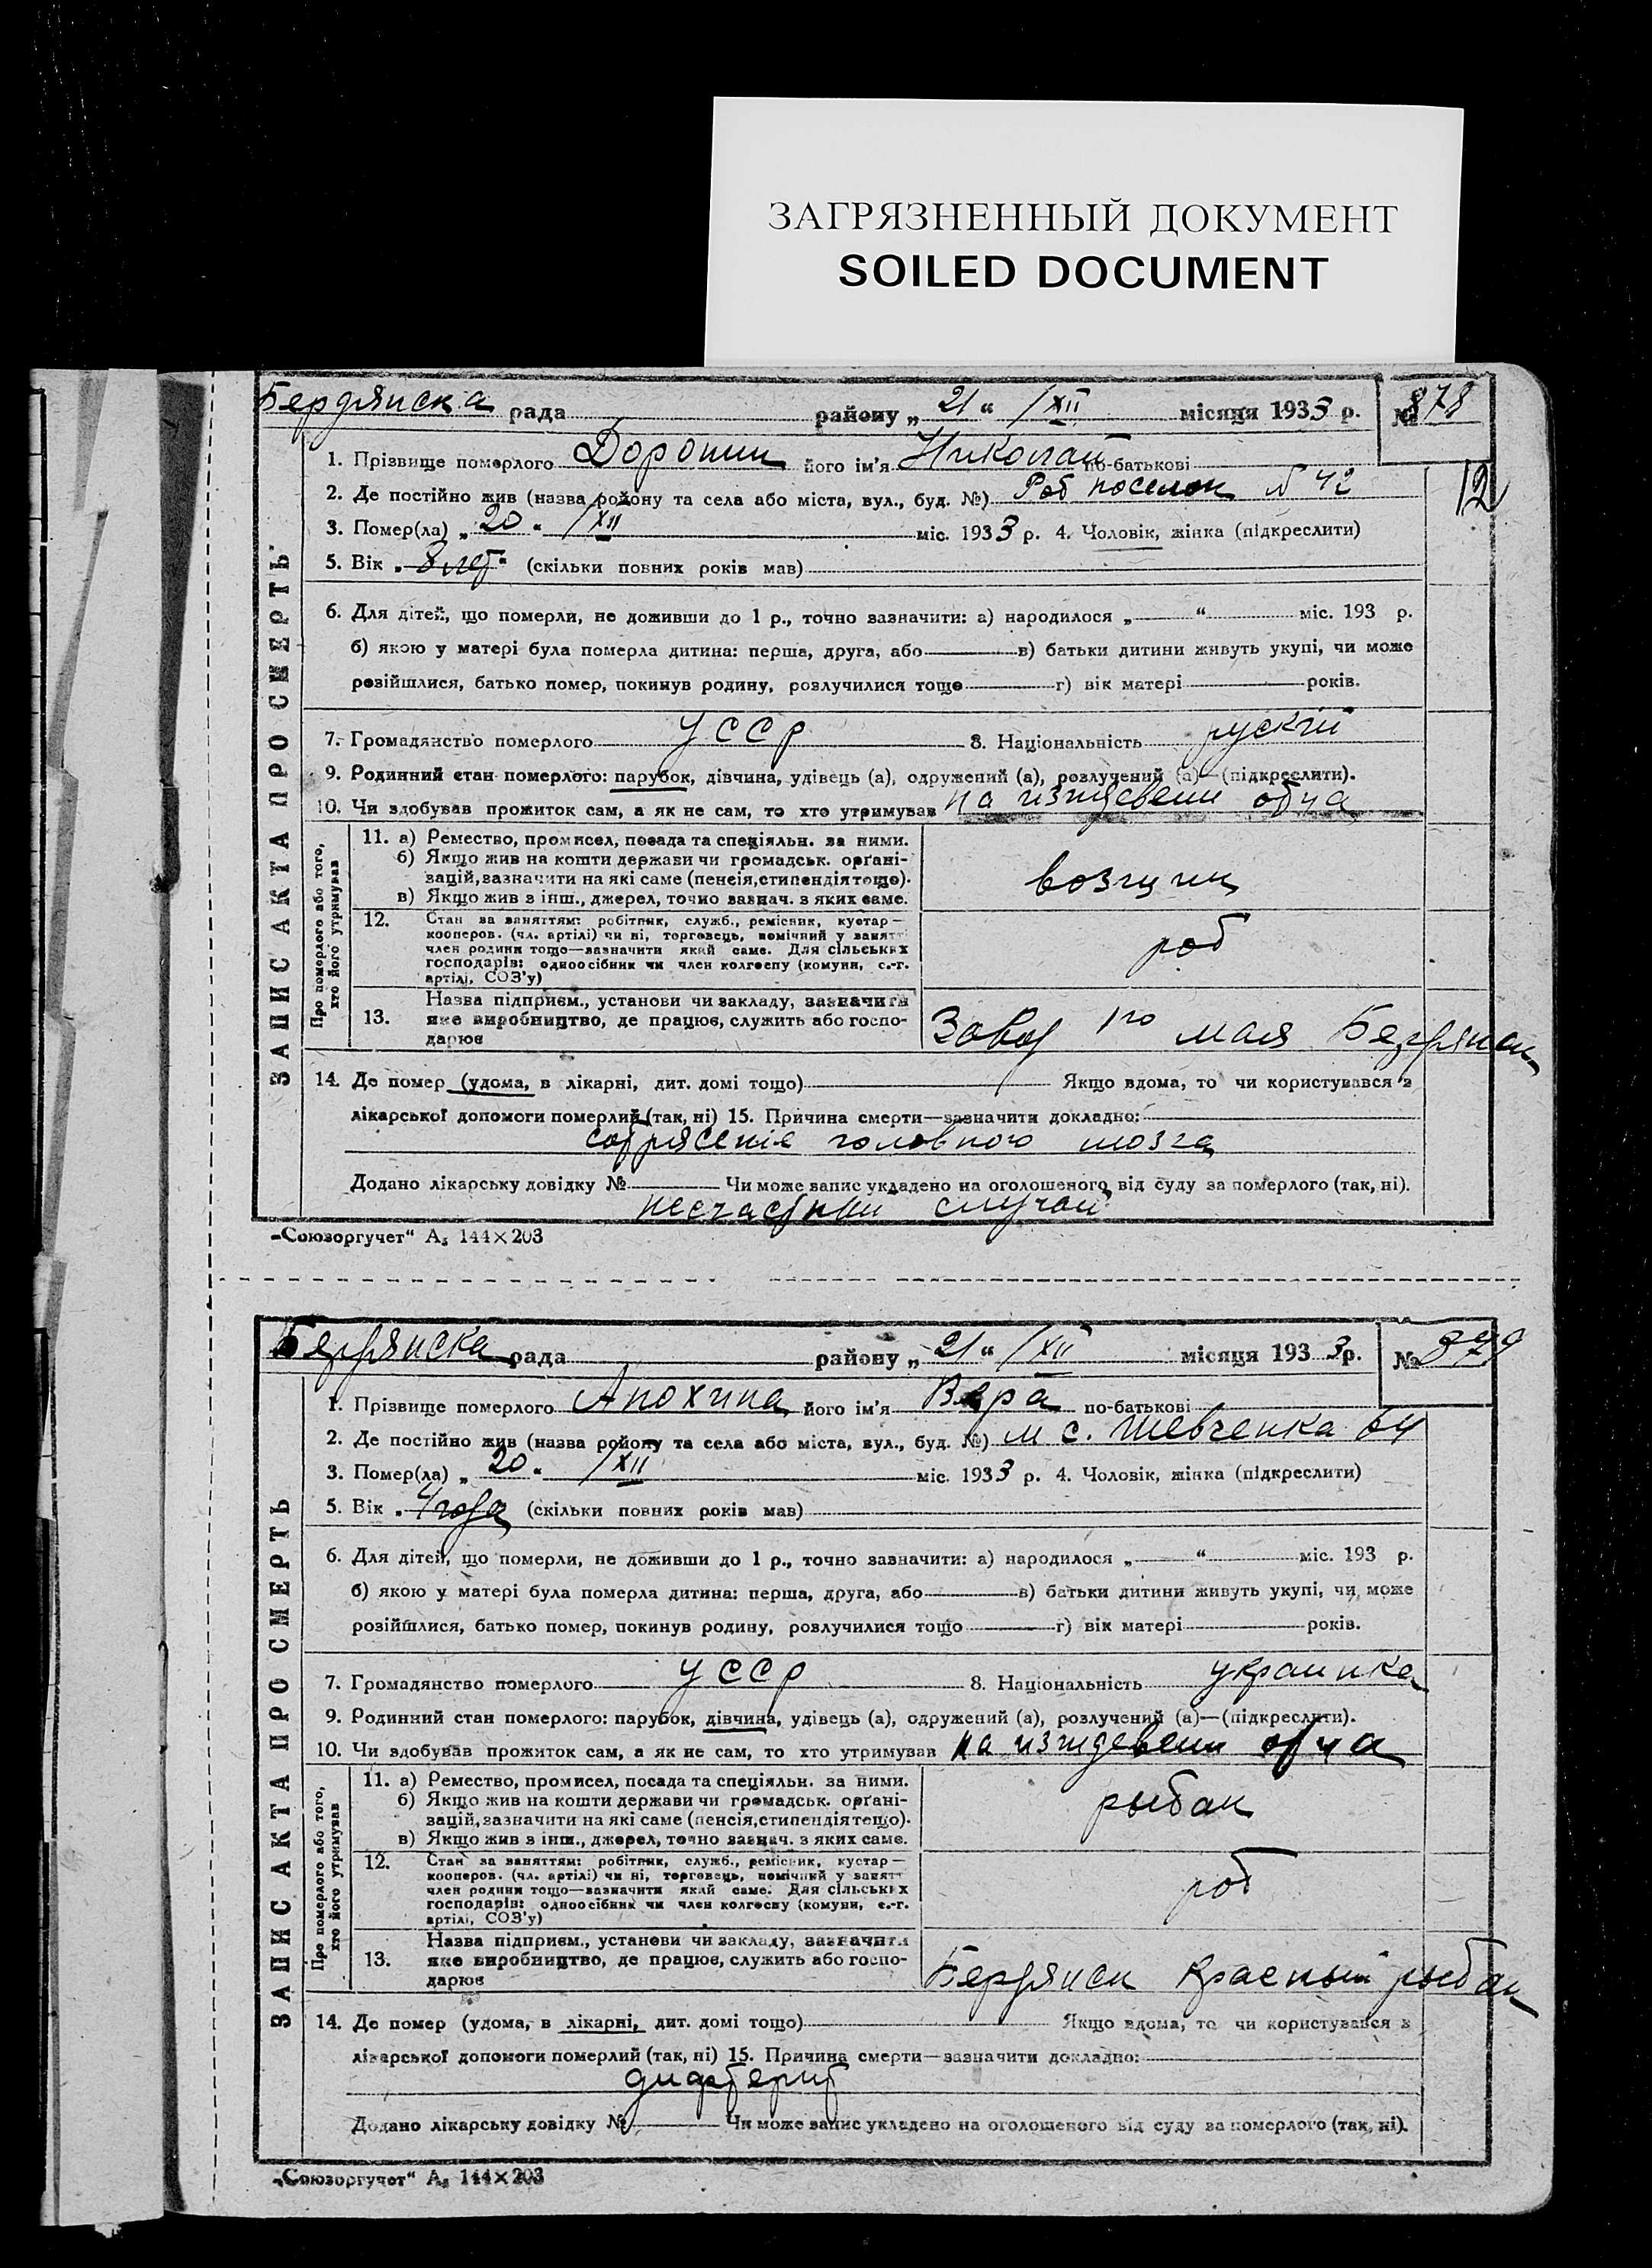 ЗАГРЯЗНЕННЫЙ ДОКУМЕНТ
SOILED DOCUMENT
Бердянска рада району „ 21 “ /XII місяця 1933 р. № 878
12
ЗАПИС АКТА ПРО СМЕРТЬ
1. Прізвище померлого Доронин його ім'я Николай по-батькові
2. Де постійно жив (назва району та села або міста, вул., буд. №) Раб поселок № 42
3. Помер(ла) „ 20 “ /XII міс. 1933 р. 4. Чоловік, жінка (підкреслити)
5. Вік „ 8 лет “ (скільки повних років мав)
6. Для дітей, що померли, не доживши до 1 р., точно зазначити: а) народилося „ “ міс. 193 р.
б) якою у матері була померла дитина: перша, друга, або в) батьки дитини живуть укупі, чи може
розійшлися, батько помер, покинув родину, розлучилися тощо г) вік матері років.
7. Громадянство померлого УССР 8. Національність руский
9. Родинний стан померлого: парубок, дівчина, удівець (а), одружений (а), розлучений (а)—(підкреслити).
10. Чи здобував прожиток сам, а як не сам, то хто утримував на изждевени отца
Про померлого або того, хто його утримував
11. а) Ремество, промисел, посада та спеціяльн. за ними.
б) Якщо жив на кошти держави чи громадськ. орґані-
зацій, зазначити на які саме (пенсія, стипендія тощо).
в) Якщо жив з інш., джерел, точно зазнач. з яких саме.
возчик
12. Стан за заняттям: робітник, служб., ремісник, кустар—
кооперов. (чл. артілі) чи ні, торговець, помічний у занятт
член родини тощо—зазначити який саме. Для сільських
господарів: одноосібник чи член колгоспу (комуни, с.-г.
артілі, СОЗ'у)
раб
13. Назва підприєм., установи чи закладу, зазначити
яке виробництво, де працює, служить або госпо-
дарює
Завод 1го мая Бердянск
14. Де помер (удома, в лікарні, дит. домі тощо) Якщо вдома, то чи користувався з
лікарської допомоги померлий (так, ні) 15. Причина смерти—зазначити докладно:
сотрясение головного мозга
Додано лікарську довідку № Чи може запис укладено на оголошеного від суду за померлого (так, ні).
несчастный случай
„Союзоргучет“ А₅ 144×203
Бердянска рада району „ 21 “ /XII місяця 1933 р. № 879
ЗАПИС АКТА ПРО СМЕРТЬ
1. Прізвище померлого Анохина його ім'я Вера по-батькові
2. Де постійно жив (назва району та села або міста, вул., буд. №) м с. Шевченка 64
3. Помер(ла) „ 20 “ /XII міс. 1933 р. 4. Чоловік, жінка (підкреслити)
5. Вік „ 4 года (скільки повних років мав)
6. Для дітей, що померли, не доживши до 1 р., точно зазначити: а) народилося „ “ міс. 193 р.
б) якою у матері була померла дитина: перша, друга, або в) батьки дитини живуть укупі, чи може
розійшлися, батько помер, покинув родину, розлучилися тощо г) вік матері років.
7. Громадянство померлого УССР 8. Національність украинка
9. Родинний стан померлого: парубок, дівчина, удівець (а), одружений (а), розлучений (а)—(підкреслити).
10. Чи здобував прожиток сам, а як не сам, то хто утримував на изждевени отца
Про померлого або того, хто його утримував
11. а) Ремество, промисел, посада та спеціяльн. за ними.
б) Якщо жив на кошти держави чи громадськ. орґані-
зацій, зазначити на які саме (пенсія, стипендія тощо).
в) Якщо жив з інш., джерел, точно зазнач. з яких саме.
рыбак
12. Стан за заняттям: робітник, служб., ремісник, кустар—
кооперов. (чл. артілі) чи ні, торговець, помічний у занятт
член родини тощо—зазначити який саме. Для сільських
господарів: одноосібник чи член колгоспу (комуни, с.-г.
артілі, СОЗ'у)
раб
13. Назва підприєм., установи чи закладу, зазначити
яке виробництво, де працює, служить або госпо-
дарює
Бердянск Красный рыбак
14. Де помер (удома, в лікарні, дит. домі тощо) Якщо вдома, то чи користувався з
лікарської допомоги померлий (так, ні) 15. Причина смерти—зазначити докладно:
дифтерит
Додано лікарську довідку № Чи може запис укладено на оголошеного від суду за померлого (так, ні).
„Союзоргучет“ А₅ 144×203